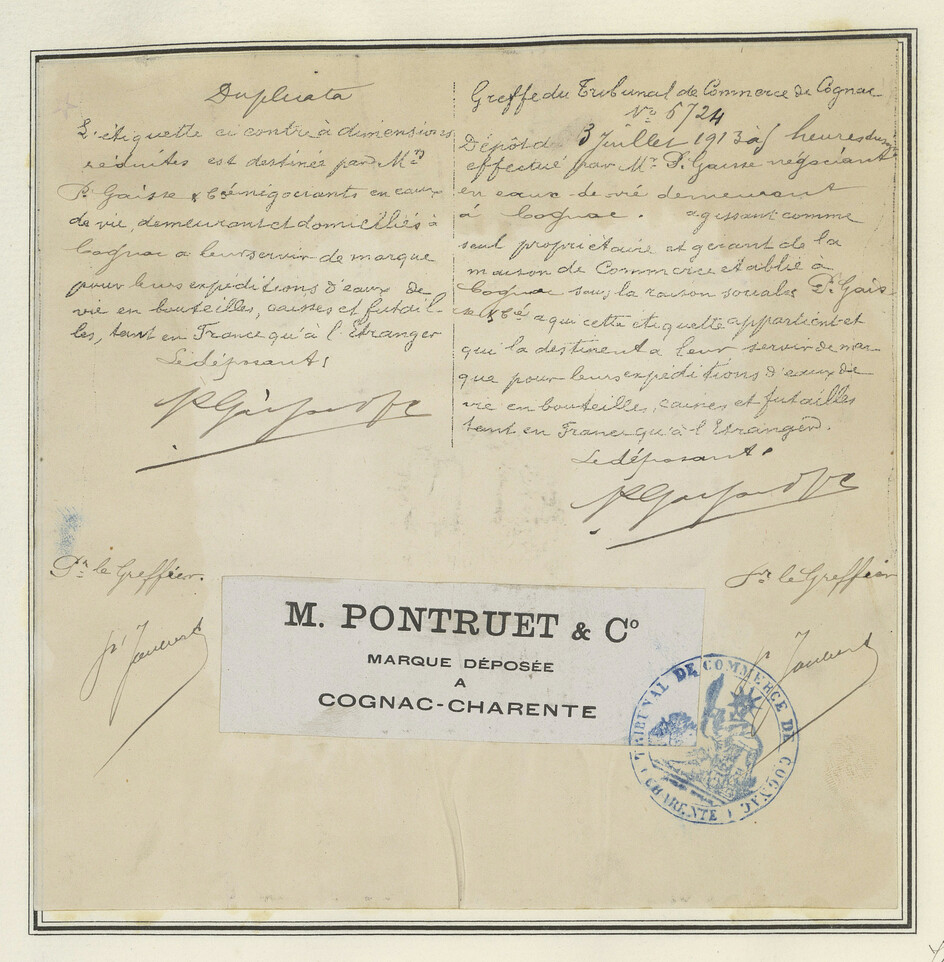 Duplicata
L'étiquette ci contre à dimensions
réduites est destinée par Mrs
P. Gaisse & Cé négociants en eaux
de vie, demeurant et domiciliés à
Cognac a leur servir de marque
pour leurs expéditions d'eaux de
vie en bouteilles, caisses et futail-
les, tant en France qu'à l'Etranger
Le déposant,
Pr le Greffier.
Greffe du Tribunal de Commerce de Cognac
No 6724
Dépôt du 3 Juillet 1913 à heures du
effectué par Mr P. Gaisse négociant
en eaux-de-vie demeurant
à Cognac. agissant comme
seul propriétaire et gérant de la
maison de Commerce établie à
Cognac sous la raison sociale, P. Gais
se & Cé a qui cette étiquette appartient et
qui la destinent a leur servir de mar-
que pour leurs expéditions d'eaux de
vie en bouteilles, caisses et futailles
tant en France qu'à l'Etranger.
Le déposant.
Pr le Greffier
M. PONTRUET & Co
MARQUE DÉPOSÉE
A
COGNAC-CHARENTE
TRIBUNAL DE COMMERCE DE COGNAC
(CHARENTE)